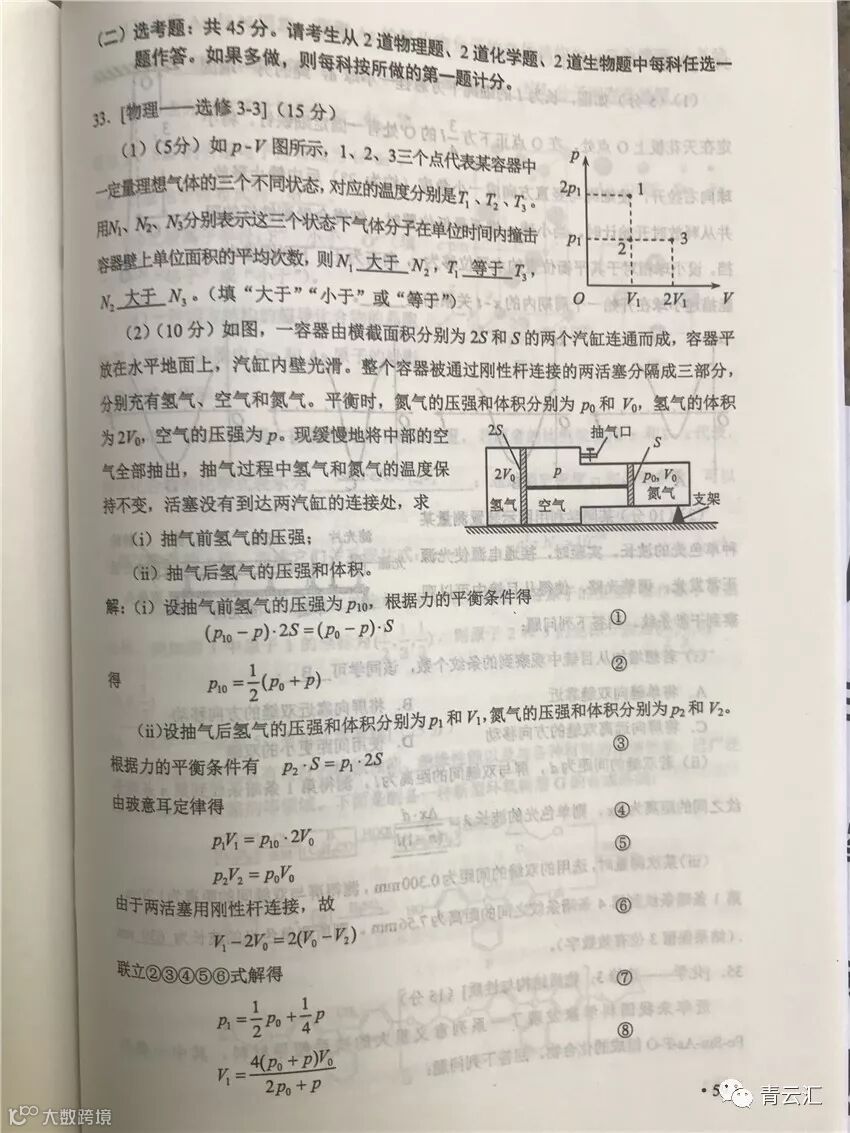 (二) 选考题：共 45 分。请考生从 2 道物理题、2 道化学题、2 道生物题中每科任选一
题作答。如果多做，则每科按所做的第一题计分。
33. [物理——选修 3-3] (15 分)
(1) (5分) 如 p-V 图所示，1、2、3三个点代表某容器中
一定量理想气体的三个不同状态，对应的温度分别是T₁、T₂、T₃。
用N₁、N₂、N₃分别表示这三个状态下气体分子在单位时间内撞击
容器壁上单位面积的平均次数，则N₁ 大于 N₂，T₁ 等于 T₃，
N₂ 大于 N₃。(填“大于”“小于”或“等于”)
p
2p₁
1
p₁
2
3
O
V₁
2V₁
V
(2) (10 分) 如图，一容器由横截面积分别为 2S 和 S 的两个汽缸连通而成，容器平
放在水平地面上，汽缸内壁光滑。整个容器被通过刚性杆连接的两活塞分隔成三部分，
分别充有氢气、空气和氮气。平衡时，氮气的压强和体积分别为 p₀ 和 V₀，氢气的体积
为 2V₀，空气的压强为 p。现缓慢地将中部的空
气全部抽出，抽气过程中氢气和氮气的温度保
持不变，活塞没有到达两汽缸的连接处，求
(i) 抽气前氢气的压强；
(ii) 抽气后氢气的压强和体积。
2S
抽气口
S
2V₀
p
p₀, V₀
氢气
空气
氮气
支架
解：(i) 设抽气前氢气的压强为 p₁₀，根据力的平衡条件得
(p₁₀ − p)·2S = (p₀ − p)·S ①
得 p₁₀ = 1/2(p₀ + p) ②
(ii)设抽气后氢气的压强和体积分别为 p₁ 和 V₁，氮气的压强和体积分别为 p₂ 和 V₂。
根据力的平衡条件有 p₂·S = p₁·2S ③
由玻意耳定律得
p₁V₁ = p₁₀·2V₀ ④
p₂V₂ = p₀V₀ ⑤
由于两活塞用刚性杆连接，故
V₁ − 2V₀ = 2(V₀ − V₂) ⑥
联立②③④⑤⑥式解得
p₁ = 1/2 p₀ + 1/4 p ⑦
V₁ = 4(p₀ + p)V₀ / 2p₀ + p ⑧
· 5
青云汇
大数跨境